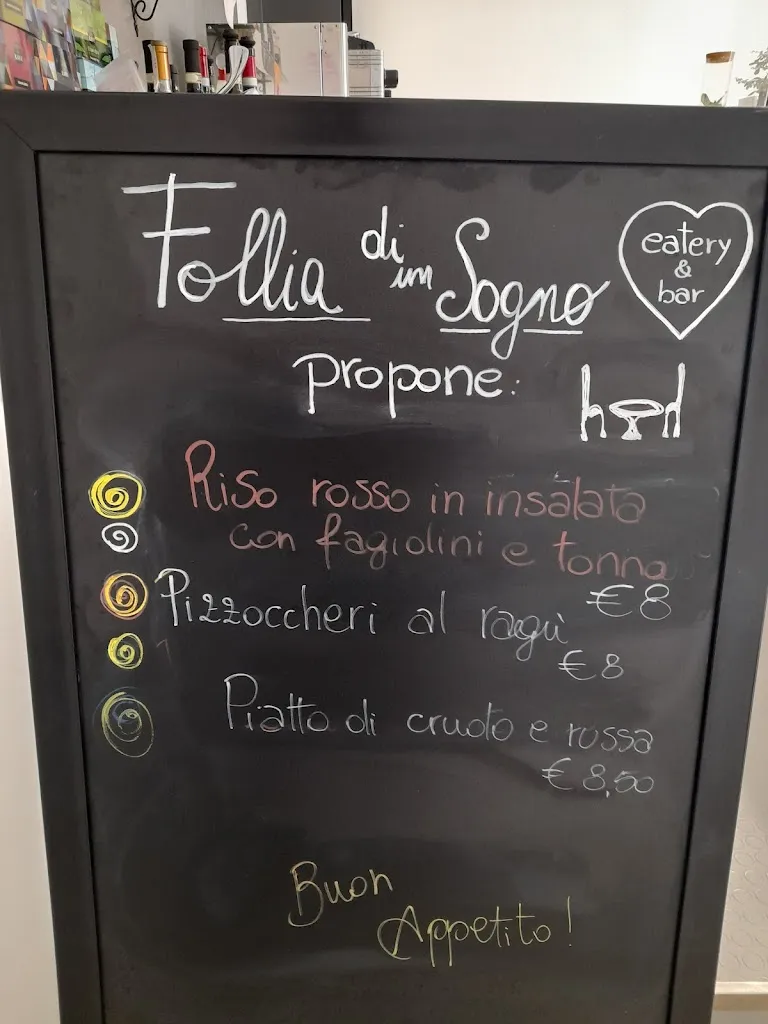 Follia di un Sogno
eatery
&
bar
propone:
Riso rosso in insalata
con fagiolini e tonno
€8
Pizzoccheri al ragù
€8
Piatto di crudo e rossa
€ 8,50
Buon
Appetito!